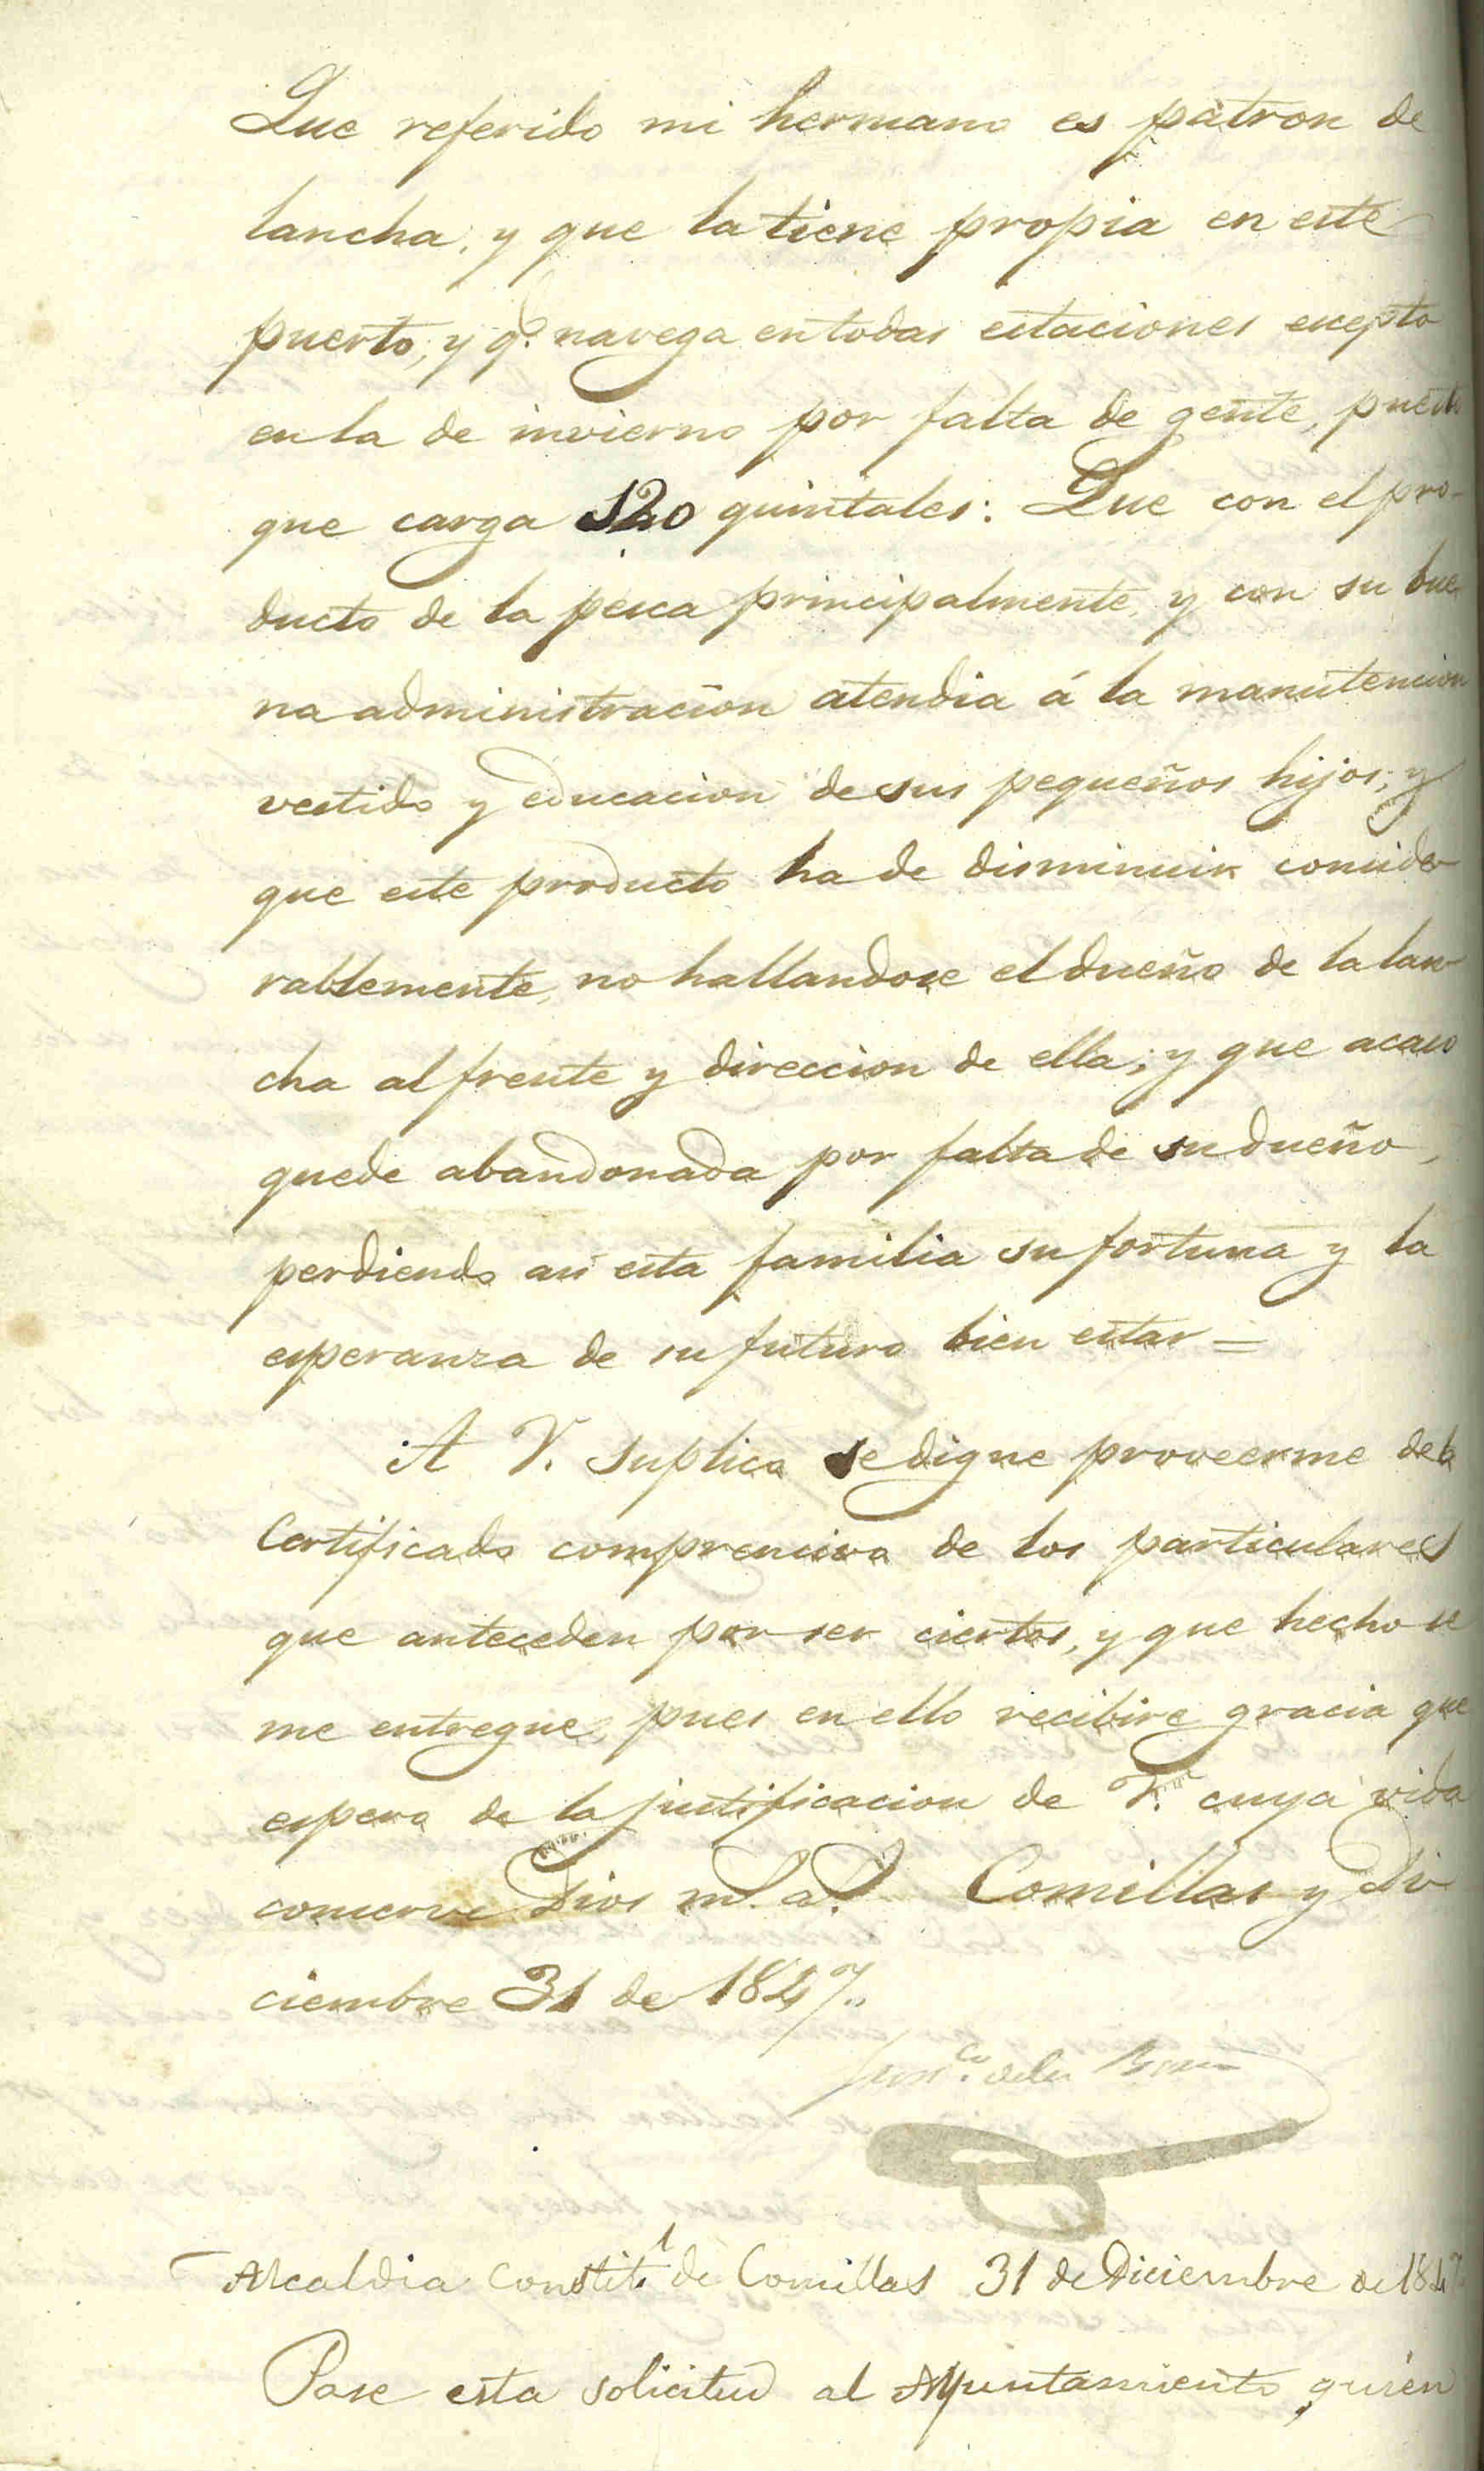 Que referido mi hermano es patron de
lancha, y que la tiene propia en este
puerto, y q.e navega en todas estaciones escepto
en la de invierno por falta de gente, puesto
que carga 120 quintales: Que con el pro-
ducto de la pesca principalmente, y con su bue
na administracion atendia á la manutencion
vestido y educacion de sus pequeños hijos; y
que este producto ha de disminuir conside
rablemente, no hallandose el dueño de la lan
cha al frente y direccion de ella; y que acaso
quede abandonada por falta de su dueño,
perdiendo asi esta familia su fortuna y la
esperanza de su futuro bien estar =
A V. suplica se digne proveerme de la
Certificado comprensiva de los particulares
que anteceden por ser ciertos, y que hecho se
me entregue, pues en ello recibire gracia que
espera de la justificacion de V. cuya vida
conserve Dios m.s a.s Comillas y Di
ciembre 31 de 1847.
de la
Alcaldia Constit.l de Comillas 31 de Diciembre de 1847
Pase esta solicitud al Ayuntamiento, quien